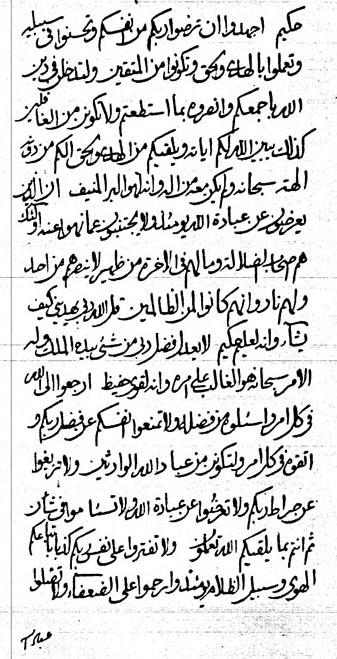 حكيم اجهدوا ان ترضوا ربكم من انفسكم وتحسنوا فى سبيله
وتعملوا بالهدى والحق وتكونوا من المتقين ولتدخلن فى دين
الله باجمعكم وانصروه بما استطعتم ولا تكونن من الغافلين
كذلك يبين الله لكم اياته ويلقيكم من الهدى والحق الكم من دونى
اله سبحانه ولم يكن معه من اله وانه لهو البر المنيف ان الذين
يعرضون عن عبادة الله يومئذ ولا يجتنبون عما نهوا عنه اولئك
هم اصحاب الضلالة وما لهم فى الاخرة من ظهير لا ينصرهم من احد
ولهم نار وانهم كانوا لمن الظالمين قل الله ربى يهدى كيف
يشاء وانه لعليم حكيم لا يعادل فضل ربى من شئ بيده الملك وله
الامر سبحانه هو الغالب على امره وانه لقوى حفيظ ارجعوا الى الله
فى كل امر واسئلوه من فضله ولا تمنعوا انفسكم عن فضل ربكم و
اتقوه فى كل امر ولتكونن من عباد الله الوارثين ولا تزيغوا
عن صراط ربكم ولا تحتجبوا عن عبادة الله ولا تسئاموا فى شأن
ثم انتم بما يلقيكم الله تعملون ولا تفتروا على نفس ربكم كذبا باتباعكم
الهوى وسبيل الظلام يومئذ وارحموا على الضعفاء ولا تقتلوا
عباد